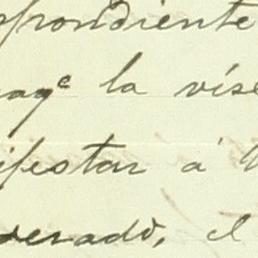 spondiente
la vise
ifestar á
derado, el